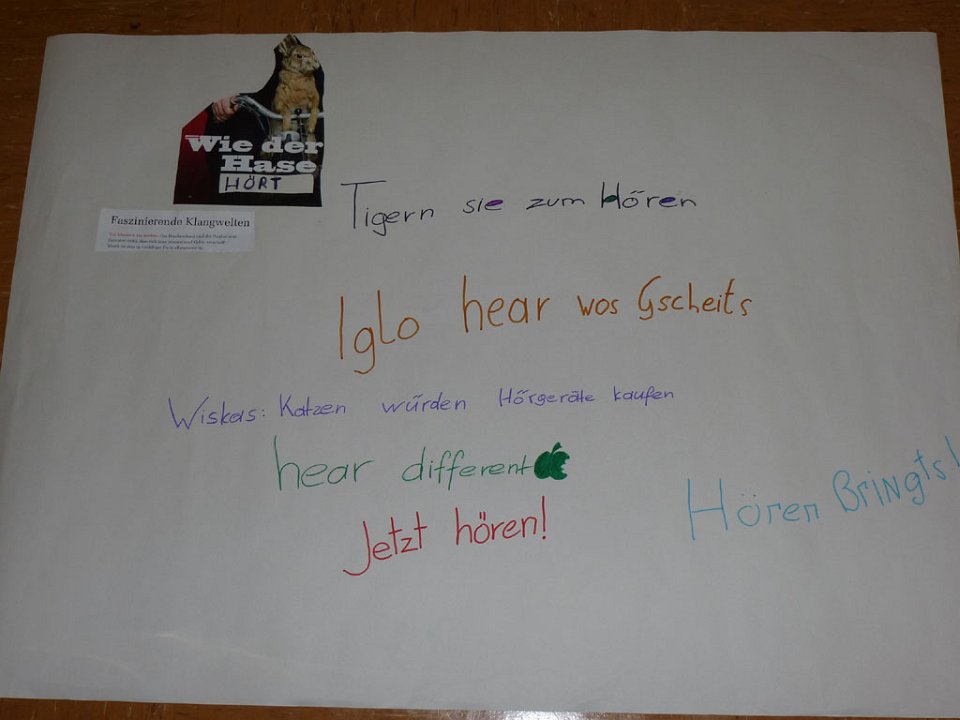 Wie der
Hase
HÖRT
Faszinierende Klangwelten
Tigern sie zum Hören
Iglo hear wos Gscheits
Wiskas: Katzen würden Hörgeräte kaufen
hear different
Hören Bringts!
Jetzt hören!